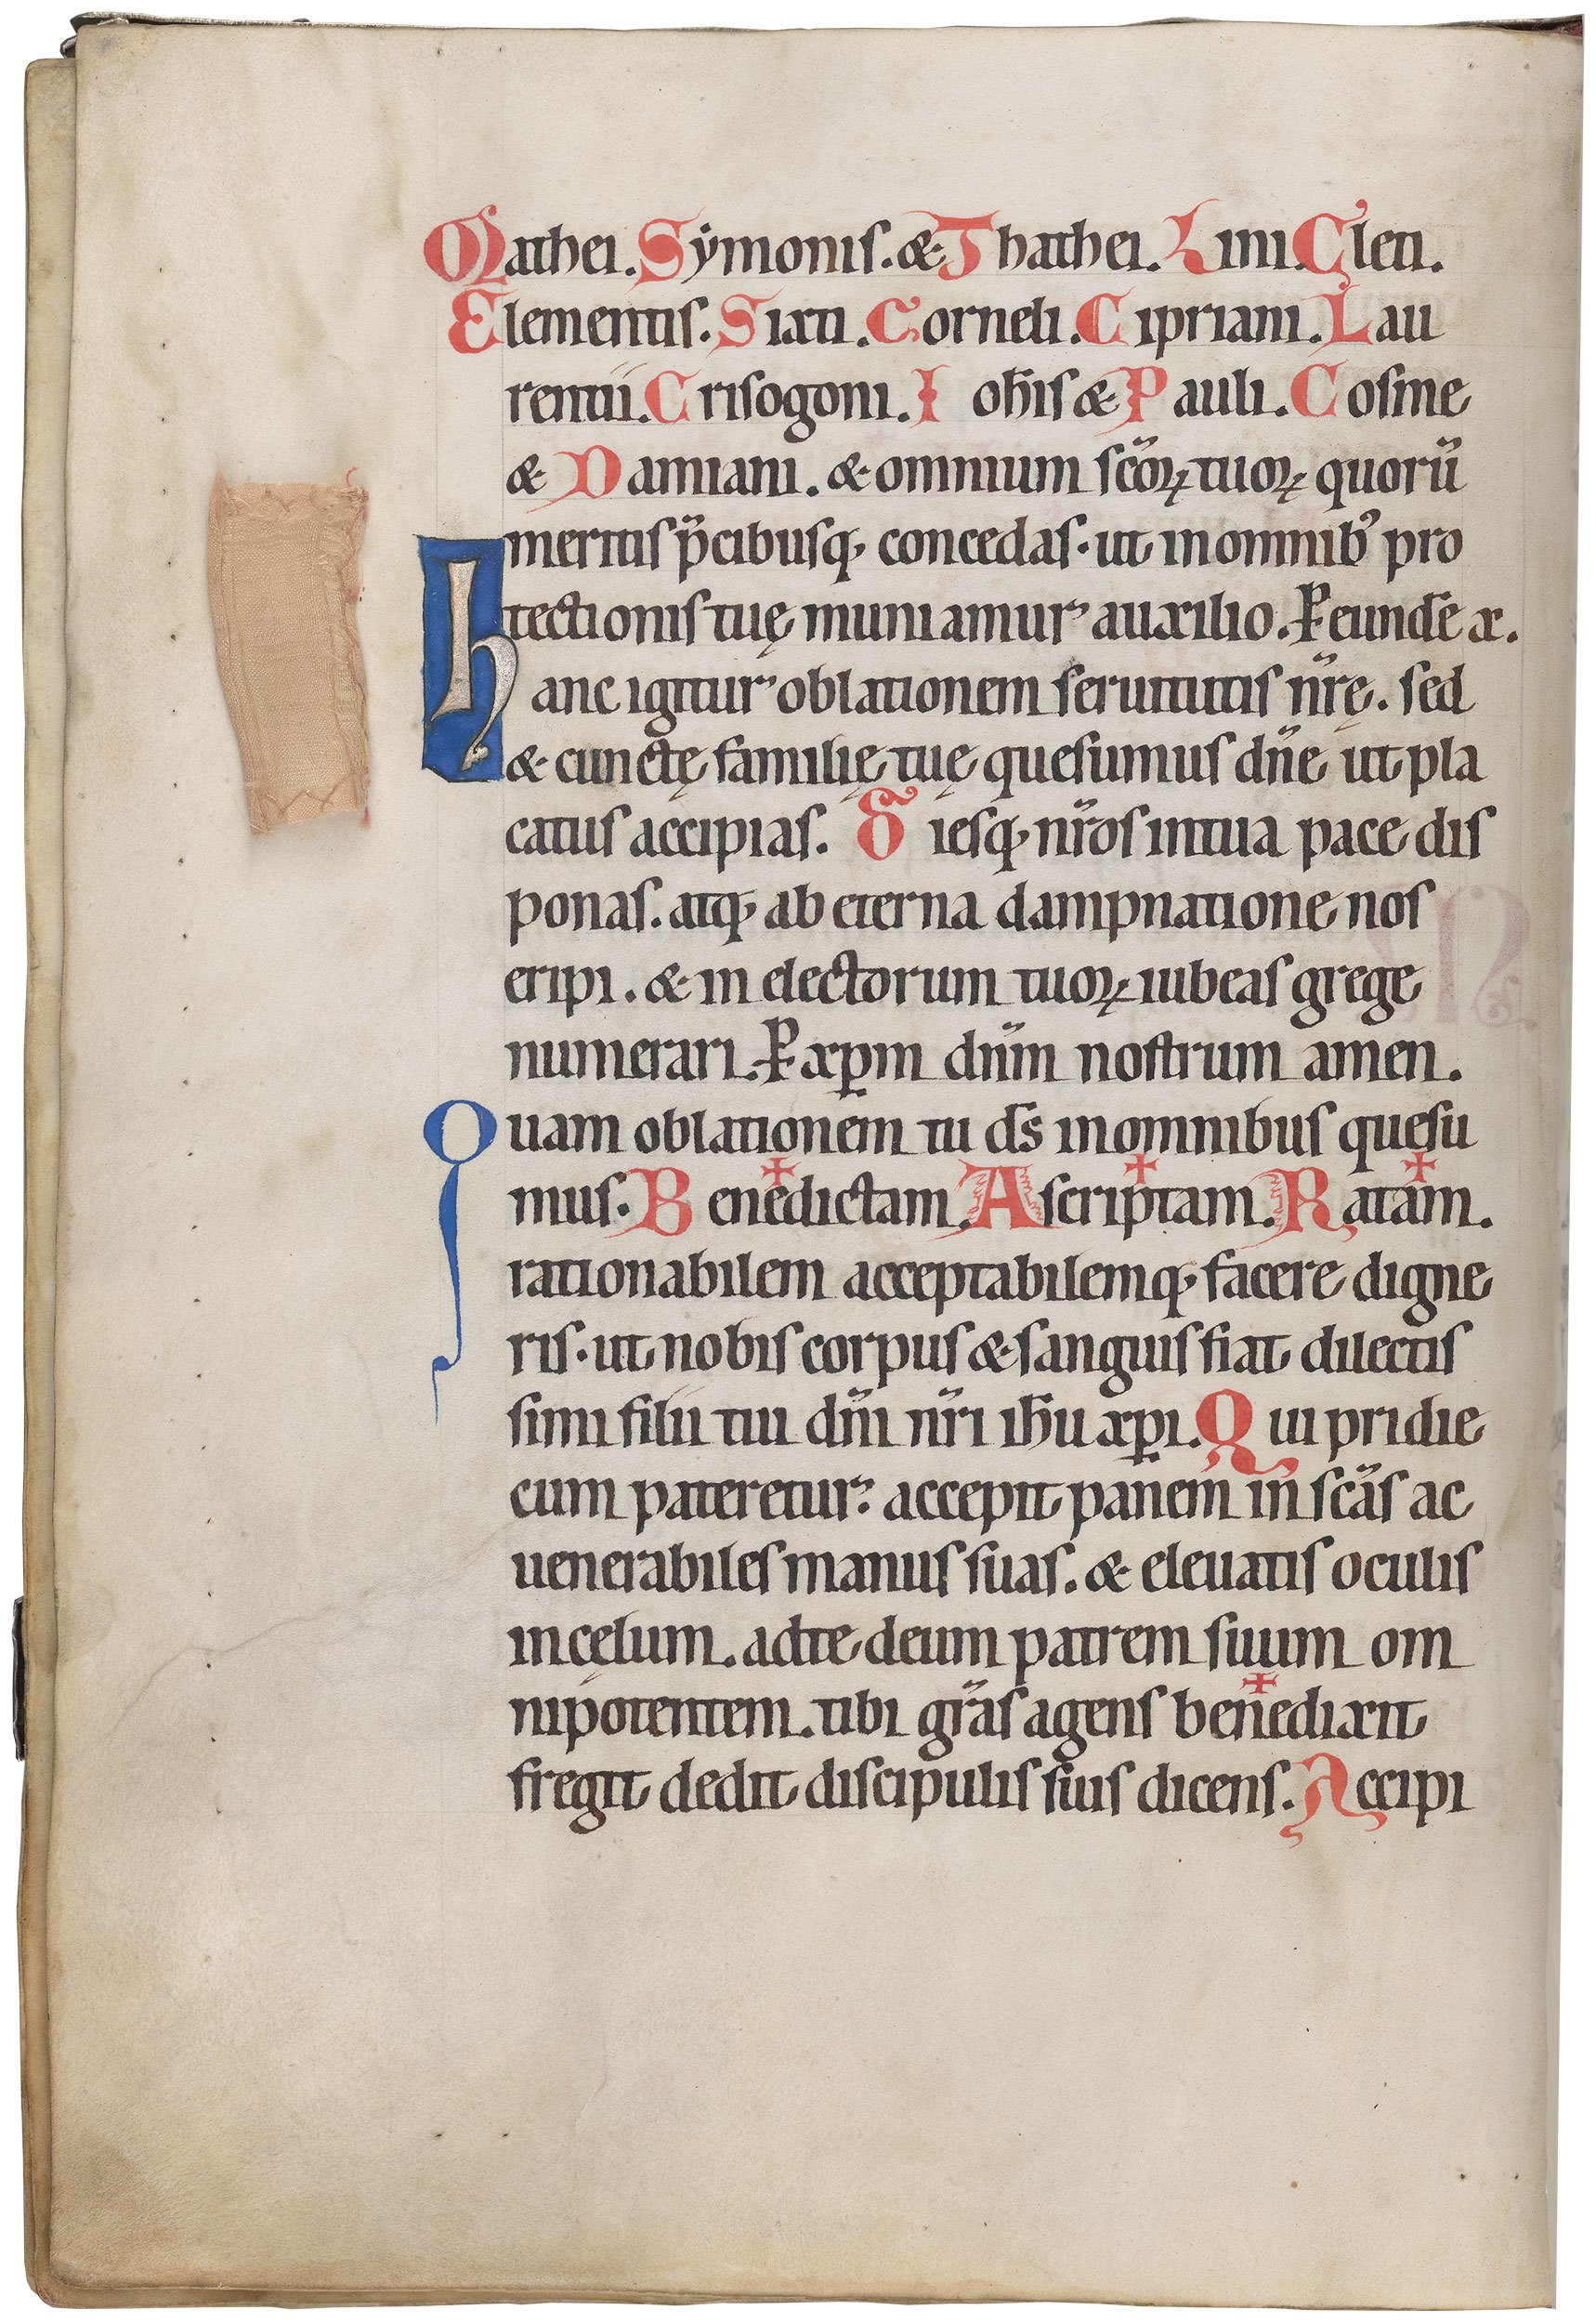 Mathei. Symonis. & Thathei. Lini. Cleti.
Elementis. Sixti. Corneli. Cipriani. Lau
rentii. Crisogoni. Ioh̅is & Pauli. Cosme
& Damiani. & omnium sc̅oꝝ tuoꝝ quorū
meritis p̅cibusq; concedas· ut in omnib᾽ pro
tectionis tuę muniamur auxilio. P eunde̅ x.
Hanc igitur oblationem seruitutis nr̅ę. sed
& cunctę familię tuę quesumus dn̅e ut pla
catus accipias. Diesq; nr̅os in tua pace dis
ponas. atq; ab eterna dampnatione nos
eripi. & in electorum tuoꝝ iubeas grege
numerari. P xp̅m dn̅m nostrum amen.
Quam oblationem tu ds̅ in omnibus quesu
mus· Bene✝dictam. Ascrip✝tam. Rata✝m.
rationabilem acceptabilemq; facere digne
ris· ut nobis corpus & sanguis fiat dilectis
simi filii tui dn̅i nr̅i ih̅u xp̅i. Qui pridie
cum pateretur: accepit panem in sc̅as ac
uenerabiles manus suas. & eleuatis oculis
in cęlum. ad te deum patrem suum om
nipotentem. tibi gr̅as agens bene✝dixit
fregit dedit discipulis suis dicens. Accipi